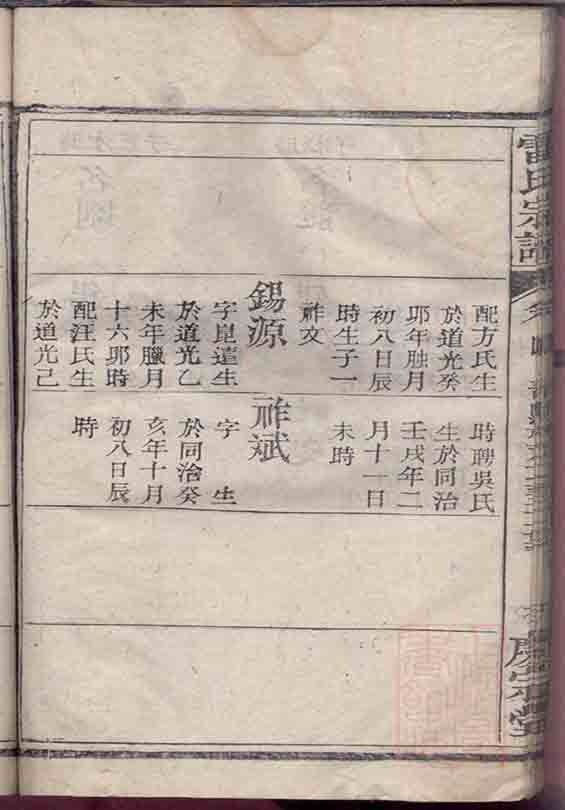 雷氏宗譜
配方氏生
於道光癸
卯年臘月
初八日辰
時生子一
祚文
錫源
字崑遠生
於道光乙
未年臘月
十六卯時
配汪氏生
於道光己
時聘吳氏
生於同治
壬戌年二
月十一日
未時
祚斌
字 生
於同治癸
亥年十月
初八日辰
時